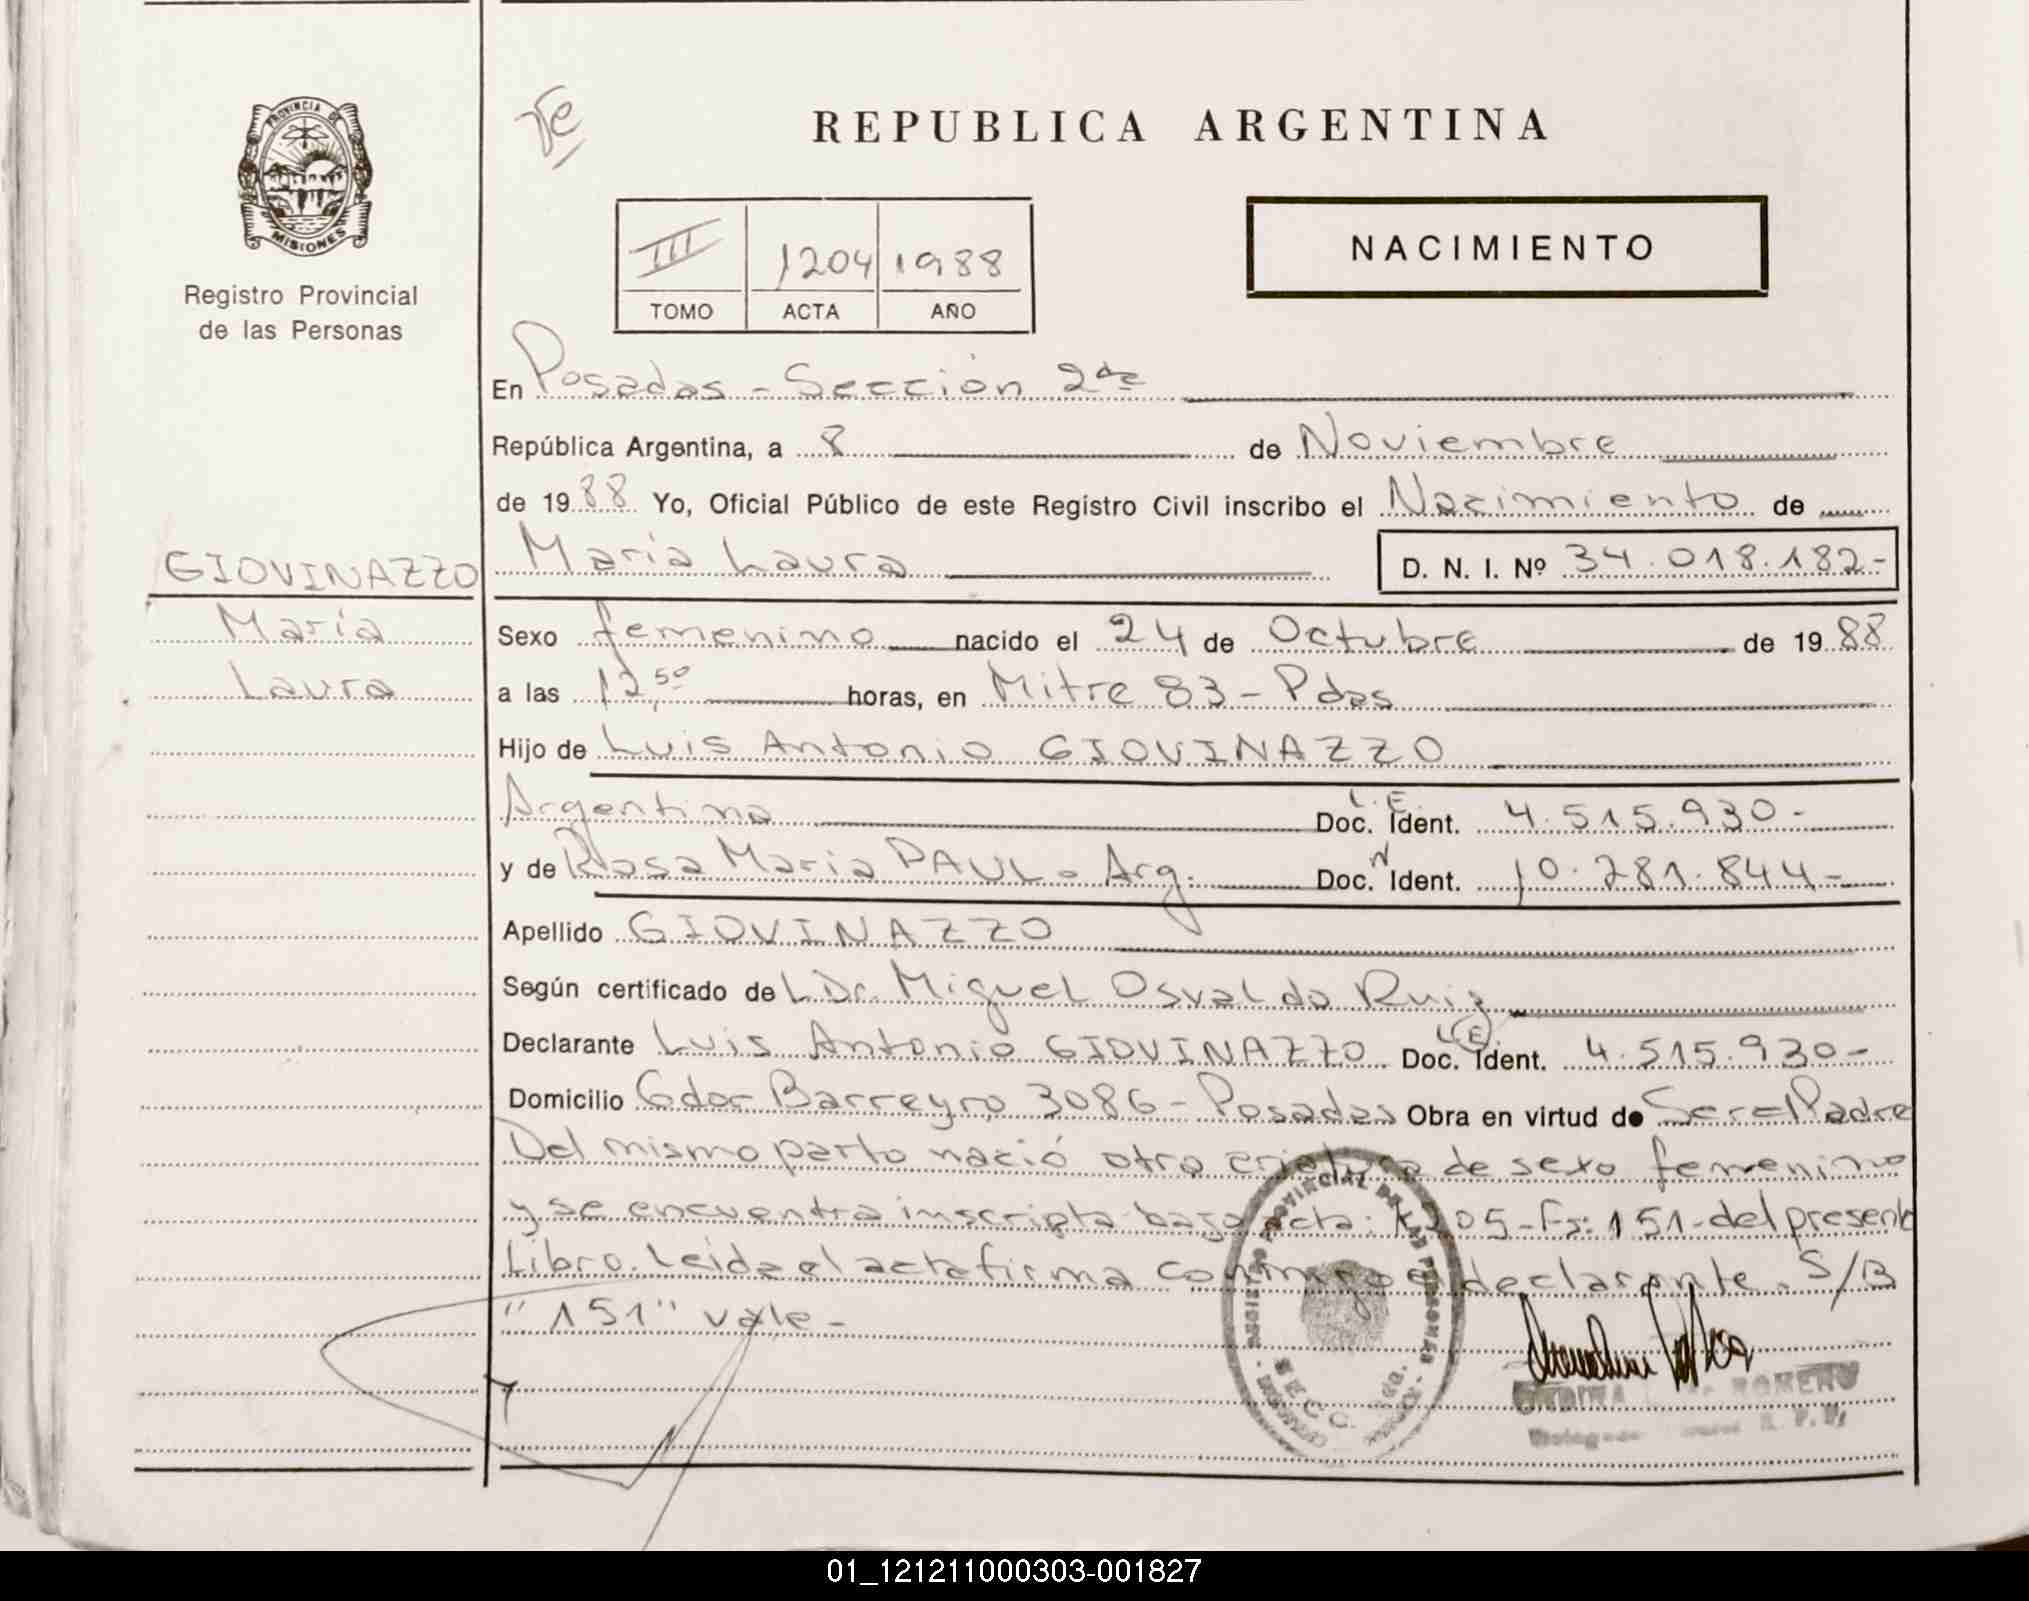 PROVINCIA DE
MISIONES
Registro Provincial
de las Personas
REPUBLICA ARGENTINA
NACIMIENTO
III 1204 1988
TOMO ACTA AÑO
En Posadas - Sección 2da
República Argentina, a 8 de Noviembre
de 1988 Yo, Oficial Público de este Registro Civil inscribo el Nacimiento de
GIOVINAZZO
María
Laura
María Laura D. N. I. Nº 34.018.182-
Sexo femenino nacido el 24 de Octubre de 1988
a las 12,50 horas, en Mitre 83 - Pdas
Hijo de Luis Antonio GIOVINAZZO
L.E.
Argentino Doc. Ident. 4.515.930-
N
y de Rosa María PAUL - Arg. Doc. Ident. 10.281.844-
Apellido GIOVINAZZO
Según certificado de L Dr. Miguel Osvaldo Ruiz
L.E.
Declarante Luis Antonio GIOVINAZZO Doc. Ident. 4.515.930-
Domicilio Gdor Barreyro 3086 - Posadas Obra en virtud de Ser el Padre
Del mismo parto nació otra criatura de sexo femenino
y se encuentra inscripta bajo acta: 1205 - Fs: 151 - del presente
Libro. Leída el acta firma conmigo el declarante. S/B
"151" vale -
PROVINCIAL DE LAS PERSONAS
SECC. 2da.
ROMERO
01_121211000303-001827